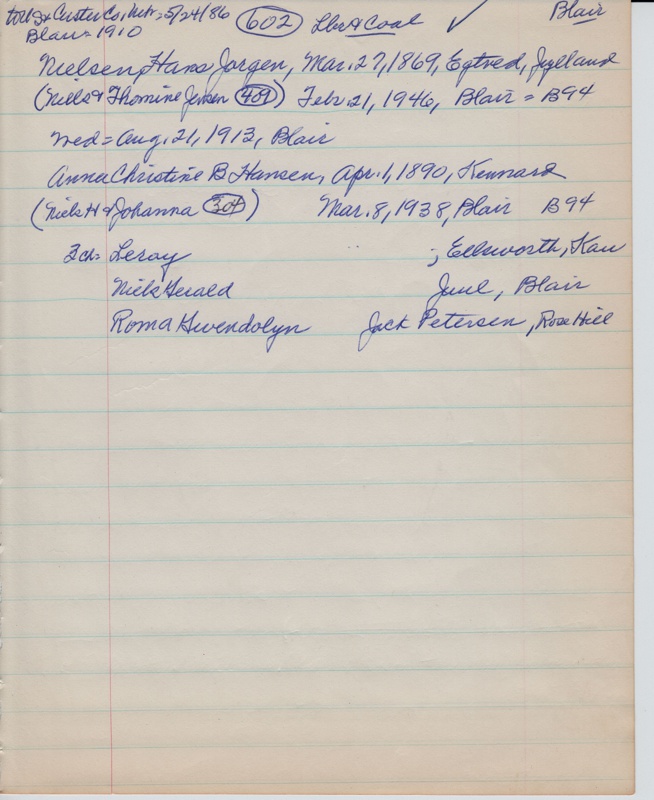 to U.S. & Custer Co., Nebr. = 5/24/86 (602) Lbr & Coal ✓ Blair
Blair = 1910
Nielsen, Hans Jorgen, Mar. 27, 1869, Egtved, Jylland
(Niels & Thomine Jensen (401)) Febr. 21, 1946, Blair = B94
Wed = Aug. 21, 1913, Blair
Anna Christine B Hansen, Apr. 1, 1890, Kennard
(Niels H & Johanna (304)) Mar. 8, 1938, Blair B94
3 ch = Leroy ; Ellsworth, Kan
Niels Gerald Juul, Blair
Roma Gwendolyn Jack Petersen, Rose Hill